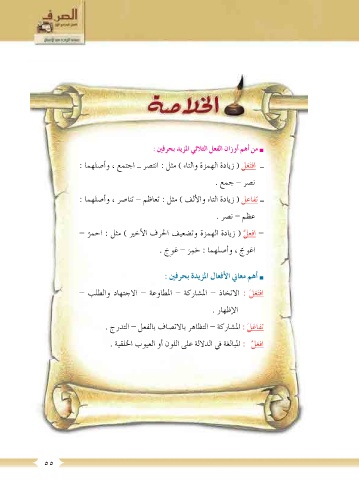 الصرف
الخلاصة
■ من أهم أوزان الفعل الثلاثي المزيد بحرفين :
ــ افتَعَلَ ( زيادة الهمزة والتاء ) مثل : انتصر ــ اجتمع ، وأصلهما :
نصر – جمع .
ــ تفاعل ( زيادة التاء والألف ) مثل : تعاظم – تناصر ، وأصلهما :
عظم – نصر .
– افعلَّ ( زيادة الهمزة وتضعيف الحرف الأخير ) مثل : احمرّ –
اعوجّ ، وأصلهما : حَمِرَ – عَوِجَ .
■ أهم معاني الأفعال المزيدة بحرفين :
افتَعَلَ : الاتخاذ – المشاركة – المطاوعة – الاجتهاد والطلب –
الإظهار .
تَفَاعَلَ : المشاركة – التظاهر بالاتصاف بالفعل – التدرج .
افعلَّ : المبالغة في الدلالة على اللون أو العيوب الخلقية .
٥٥